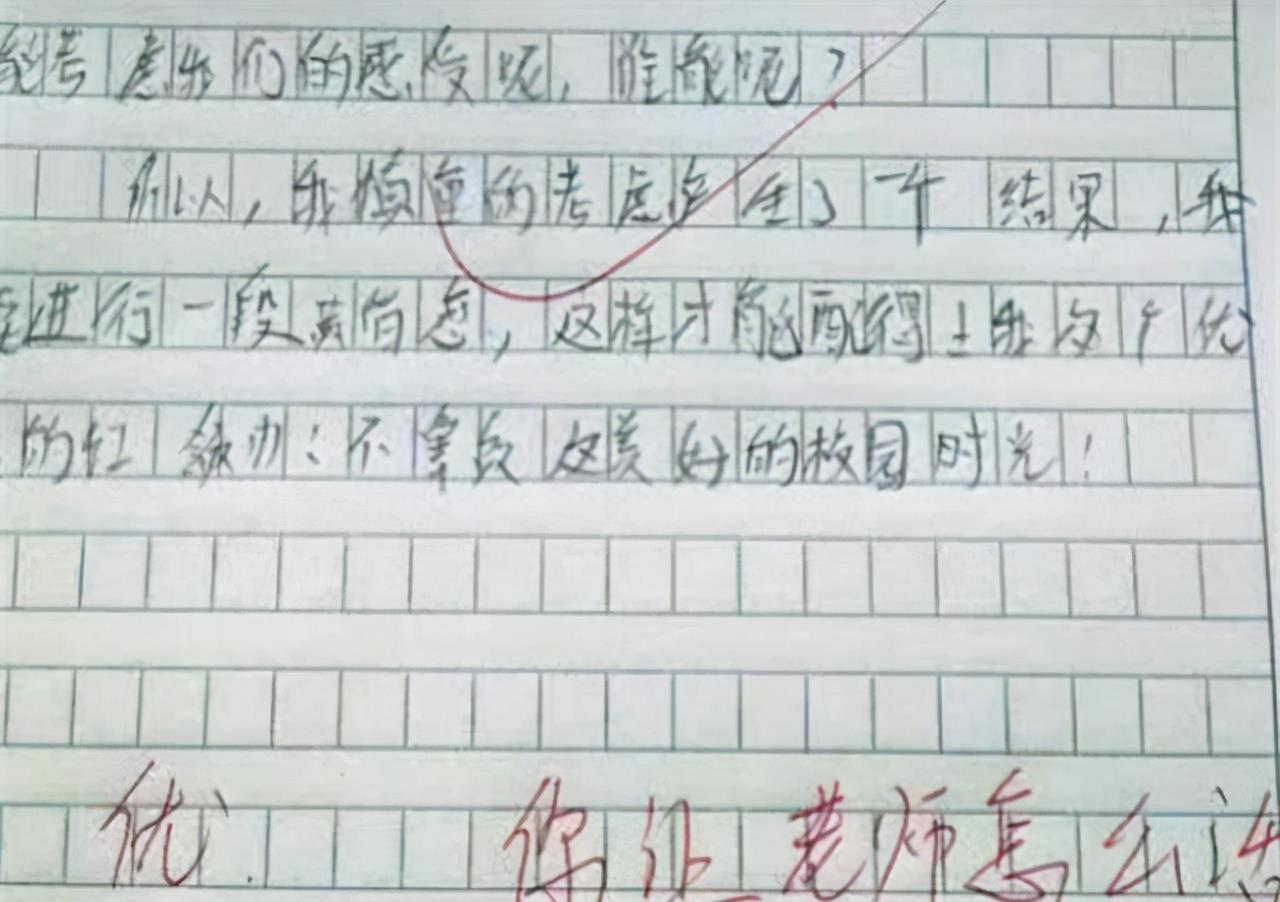 能考虑我们的感受呢，谁能呢？
所以，我慎重的考虑产生了一个结果，我
进行一段黄昏恋，这样才能配得上我这个优
的红领巾！不辜负这美好的校园时光！
优 你让老师怎么活